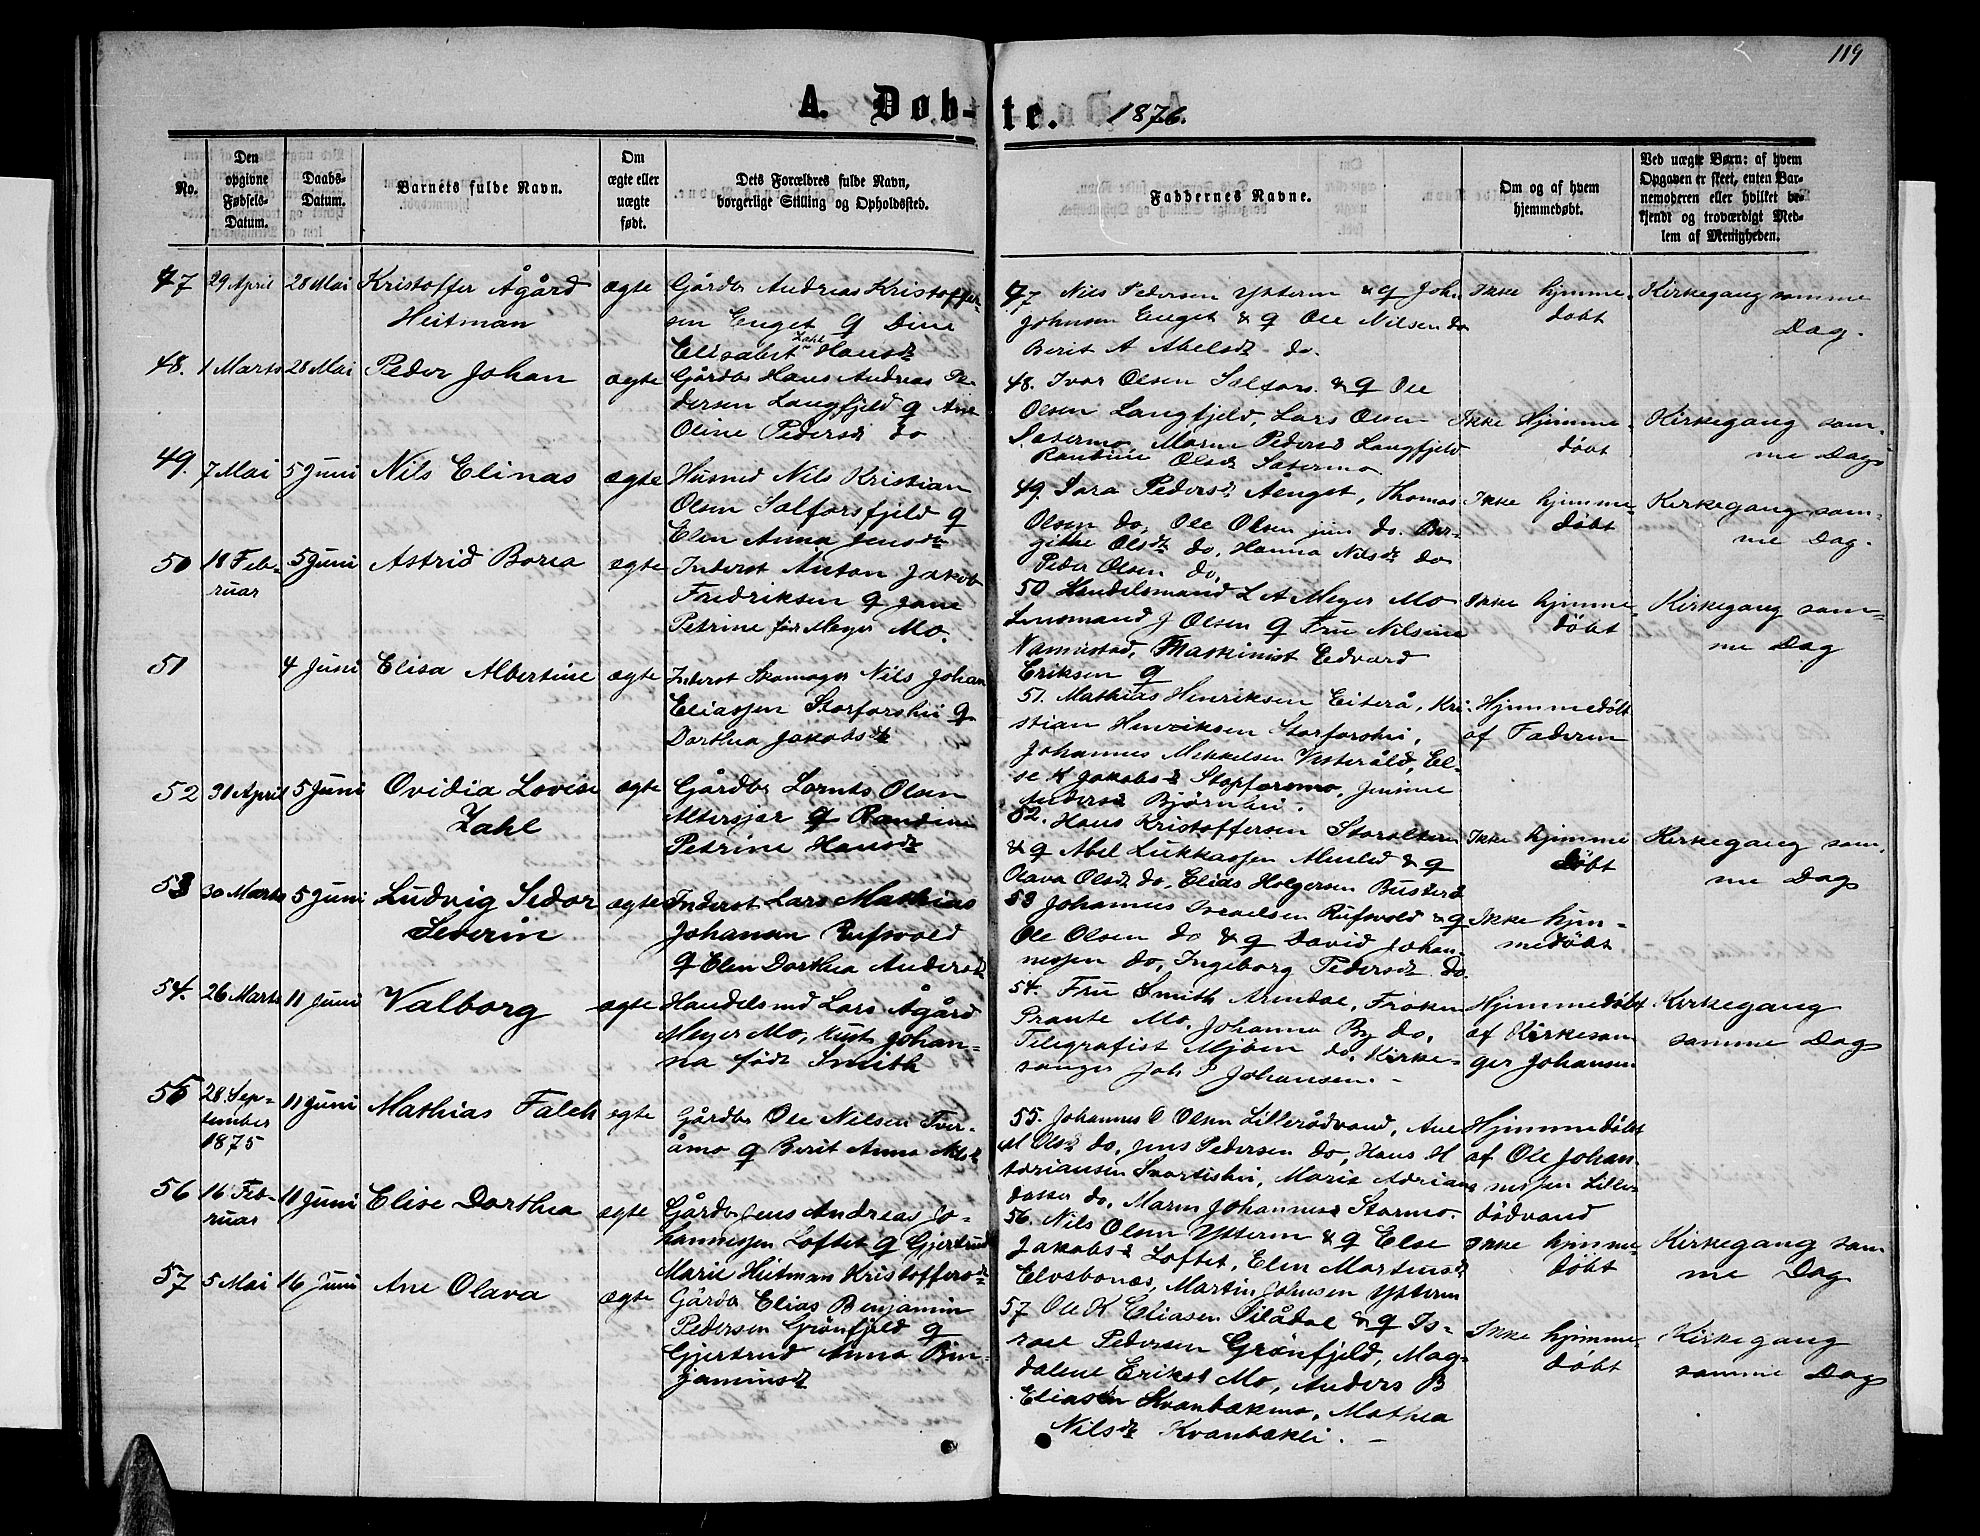 119
A. Døb-te. 1876.
No.
Den opgivne Fødsels-Datum.
Daabs-Datum.
Barnets fulde Navn.
Om ægte eller uægte født.
Dets Forældres fulde Navn, borgerlige Stilling og Opholdsted.
Faddernes Navne.
Om og af hvem hjemmedøbt.
Ved uægte Børn: af hvem Opgaven er skeet, enten Barnemoderen eller hvilket bekjendt og troværdigt Medlem af Menigheden.
47 29 April 28 Mai Kristoffer Ågård
Heitman
ægte
Gårdbr Andreas Kristoffer-
sen Enget & Dine
Elisabet Zahl Hansdr
47 Nils Pedersen Ytterm & & Joh
Johnsen Enget & & Ole Nilsen do
Berit A Abelsdr do.
Ikke hjemme-
døbt
Kirkegang samme
Dag.
48. 1 Marts 28 Mai Peder Johan
ægte
Gårdbr Hans Andreas Pe-
dersen Langfjeld & Ane
Oline Pedersdr do
48. Ivar Olsen Selfors & & Ole
Olsen Langfjeld, Lars Olsen
Sætermo, Maren Pedersdr Langfjeld
Randine Olsdr Sætermo
Ikke Hjemme-
døbt
Kirkegang sam-
me Dag
49. 7 Mai 5 Juni Nils Elinas
ægte
Husmd Nils Kristian
Olsen Selforsfjeld &
Elen Anna Jensdr
49. Sara Pedersdr Aenget, Thomas
Olsen do, Ole Olsen jun do. Ber-
gitte Olsdr do, Hanna Nilsdr do
Peder Olsen do.
Ikke hjemme-
døbt
Kirkegang sam-
me Dag.
50 18 Feb-
ruar
5 Juni Astrid Borea
ægte
Inderst Anton Jakob
Fredriksen & Jane
Petrine født Meyer Mo.
50 Handelsmand L A Meyer Mo
Lensmand J Olsen & Fru Nilsine
Namnstad, Maskinist Edvard
Eriksen &
Ikke hjemme-
døbt
Kirkegang sam-
me Dag
51 4 Juni Elisa Albertine
ægte
Inderst Skomager Nils Johan
Eliassen Storforshei &
Dorthea Jakobsdr
51. Mathias Henriksen Eiterå, Kri-
stian Henriksen Storforshei,
Johannes Mikkelsen Vesteråld, El-
se K Jakobsdr Storforsmo, Jenine
Andersdr Bjørnhei.
Hjemmedøbt
af Faderen
52 31 April 5 Juni Ovidia Lovise
Zahl
ægte
Gårdbr Lornts Olsen
Altersjør & Randine
Petrine Hansdr
52. Hans Kristoffersen Storalteren
& & Abel Lukkassen Almlid & &
Olava Olsdr do, Elias Holgersen Busterå
Ikke hjemme
døbt
Kirkegang sam-
me Dag
53 30 Marts 5 Juni Ludvig Sedor
Severin
ægte
Inderst Lars Mathias
Johansen Rufsvold
& Elen Dorthea Andersdr
53 Johannes Israelsen Rufsvold & &
Ole Olsen do & & David Johan-
nessen do, Ingeborg Pedersdr do.
Ikke hjem-
medøbt
54. 26 Marts 11 Juni Valborg
ægte
Handelsmd Lars Ågård
Meyer Mo, Kust Johan-
na født Smith
54. Fru Smith Arendal, Frøken
Prante Mo, Johanna By do,
Telegrafist Mjøen do, Kirke-
sanger Joh P Johansen. -
Hjemmedøbt
af Kirkesan
ger Johansen
Kirkegang
samme Dag
55 28 Sep-
tember
1875
11 Juni Mathias Falch
ægte
Gårdbr Ole Nilsen Tver-
åmo & Berit Anna Nilsdr
55. Johannes O Olsen Lillerødvand, Ane
M Olsdr do, Jens Pedersen do, Hans H
Adriansen Svartishei, Marie Adrians
datter do, Maren Johannesdr Stormo.
Hjemmedøbt
af Ole Johan-
nessen Lille-
rødvand
56 16 Feb-
ruar
11 Juni Elise Dorthea
ægte
Gårdbr Jens Andreas Jo-
hannessen Loftet & Gjertrud
Marie Heitman Kristoffersdr
56. Nils Olsen Ytterm & & Else
Jakobsdr Loftet, Elen Martinsdr
Elvsbonæs, Martin Johnsen Ytterm
Ikke hjemme-
døbt
Kirkegang sam
me Dag
57 5 Mai 16 Juni Ane Olava
ægte
Gårdbr Elias Benjamin
Pedersen Grønfjeld &
Gjertrud Anna Ben-
jaminsdr
57 Ole K Eliasen Selådal & & Is-
rael Pedersen Grønfjeld, Mag-
dalene Eriksd Mo, Anders B
Eliasen Kvanbækmo, Mathea
Nilsdr Kvanbækli. -
Ikke hjemme-
døbt
Kirkegang
samme Dag